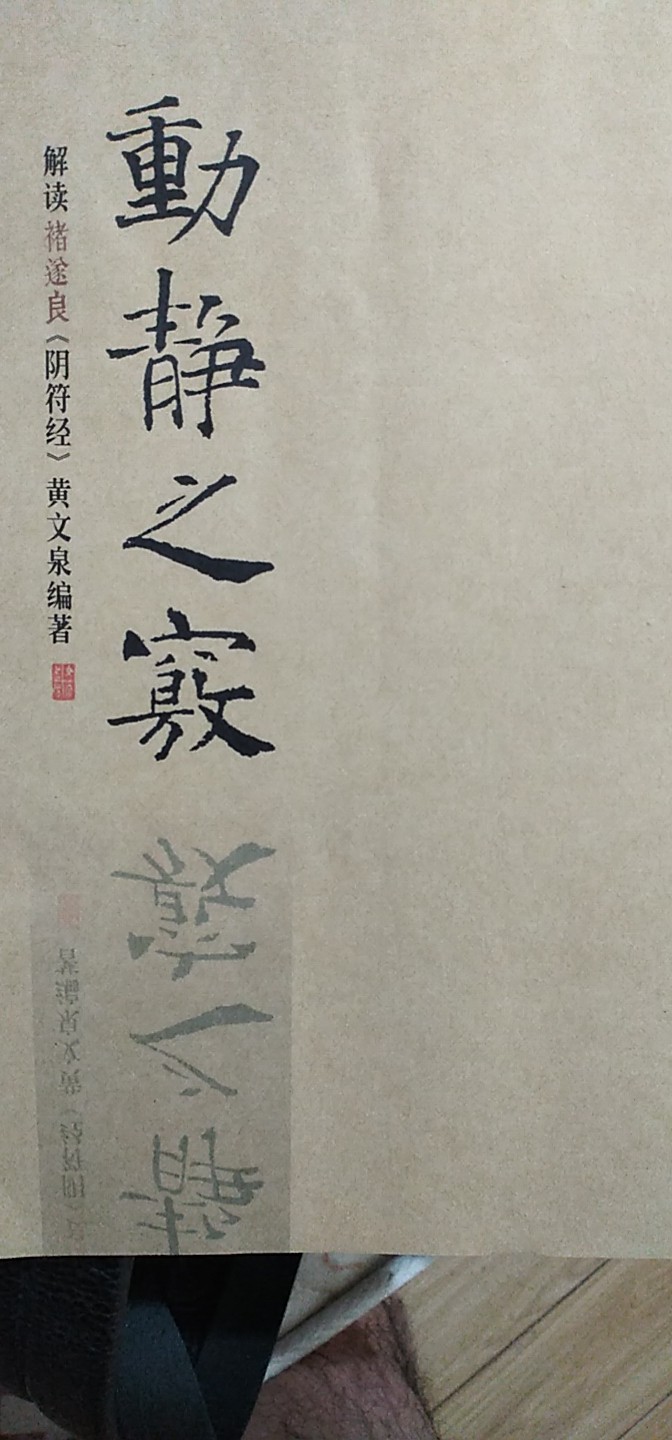 動静之竅
解读褚遂良《阴符经》黄文泉编著